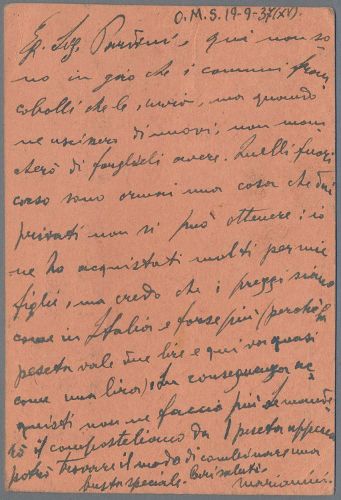 O.M.S. 19-9-37 (XV)
Eg. Sig. Pardini, qui non so
no in giro che i comuni fran
cobolli che le invio, ma quando
ne uscissero di nuovi, non man
cherò di farglieli avere. Quelli fuori
corso sono ormai una cosa che dai
privati non si può ottenere; io
ne ho acquistati molti per mio
figlio, ma credo che i prezzi siano
come in Italia e forse più (perchè la
peseta vale due lire e qui va quasi
come una lira). In conseguenza ac
quisti non ne faccio più. Le mande
rò il compostellano da 1 peseta appena
potrò trovare il modo di combinare una
busta speciale. Cari saluti